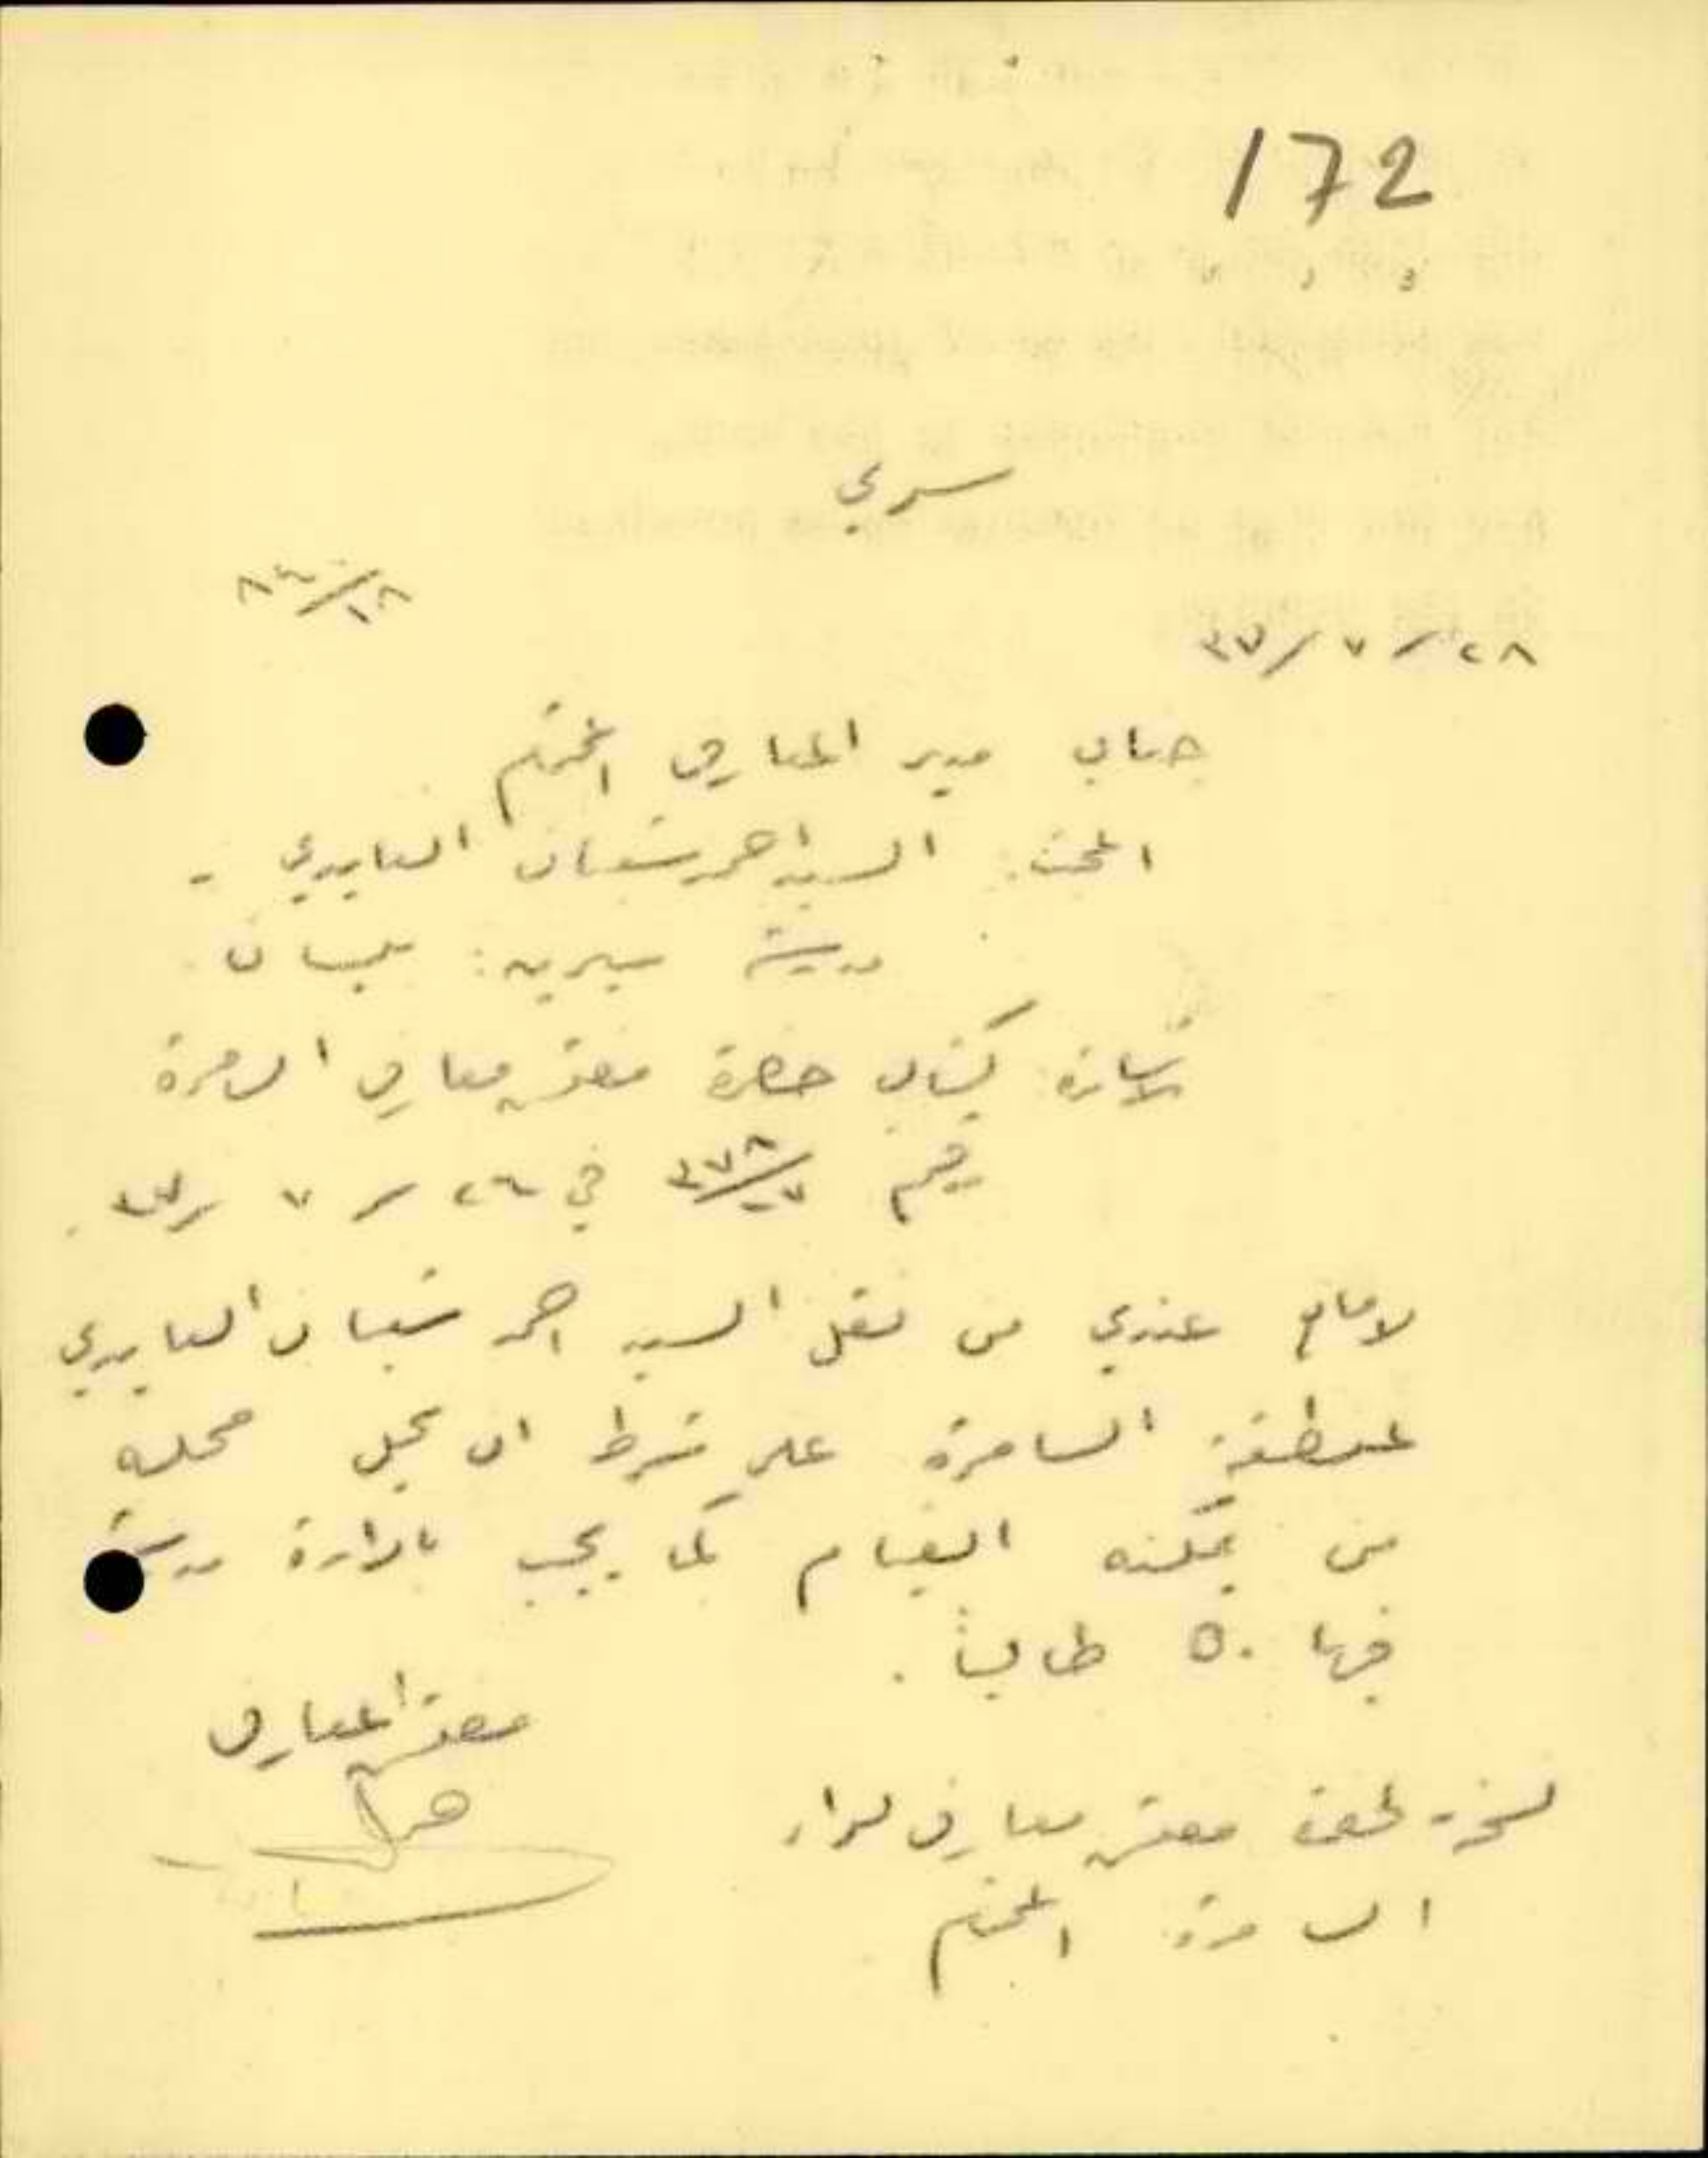 172
سري
٨٦/١٨
٢٨/٧/٣٧
جناب مدير المعارف المحترم
المبحث: السيد احمد شعبان العابدي -
مدرسة سيرين: بيسان
الاشارة: كتاب حضرة مفتش معارف السامرة
رقم ٣٧٨/٢٧ في ٢٦/٧/٣٧.
لا مانع عندي من نقل السيد احمد شعبان العابدي
لمنطقة السامرة على شرط ان يحل محله
من يمكنه القيام بما يجب بادارة مدرسة
فيها ٥٠ طالباً.
مفتش المعارف
نسخة لحضرة مفتش معارف لواء
السامرة المحترم